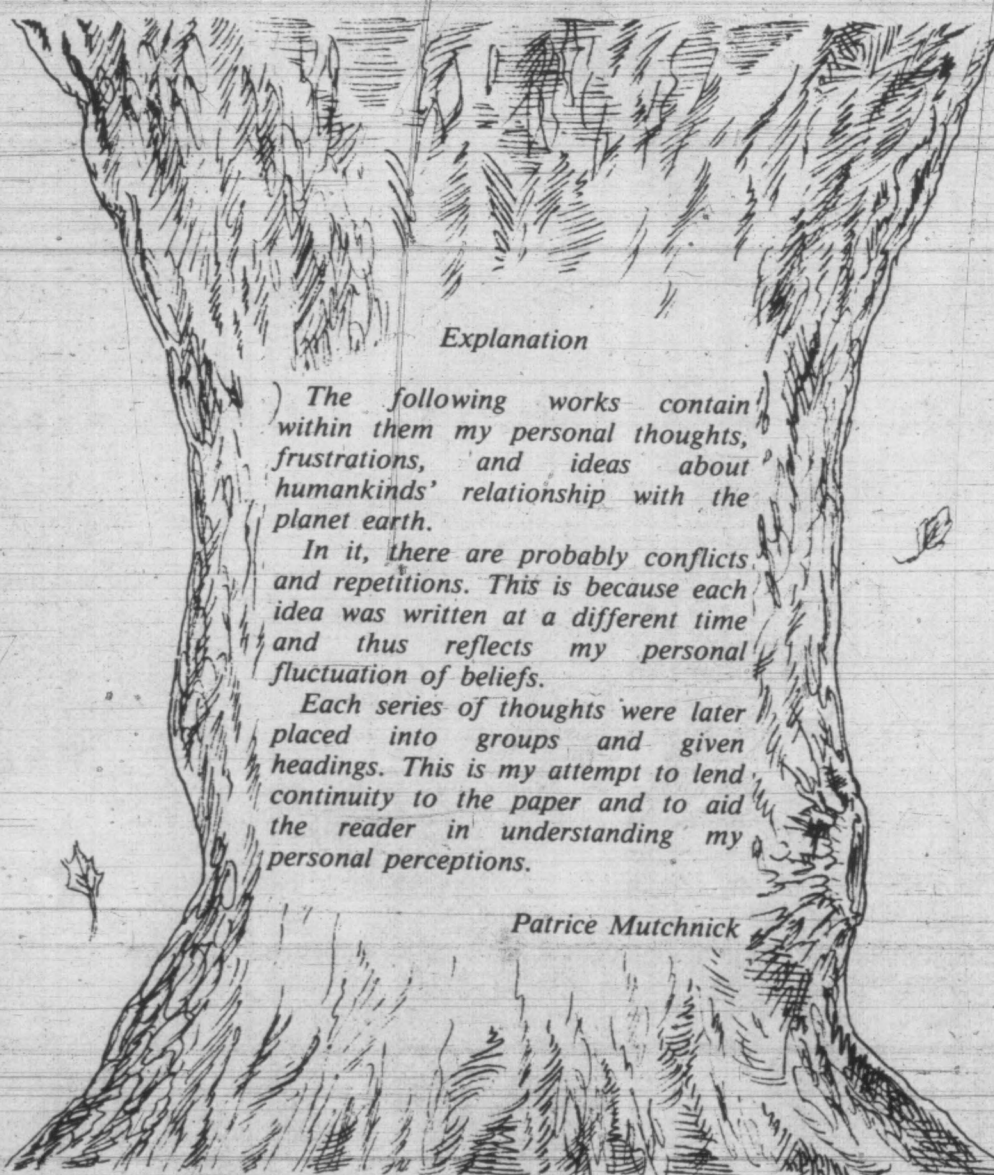 Explanation
The following works contain
within them my personal thoughts,
frustrations, and ideas about
humankinds' relationship with the
planet earth.
In it, there are probably conflicts
and repetitions. This is because each
idea was written at a different time
and thus reflects my personal
fluctuation of beliefs.
Each series of thoughts were later
placed into groups and given
headings. This is my attempt to lend
continuity to the paper and to aid
the reader in understanding my
personal perceptions.
Patrice Mutchnick